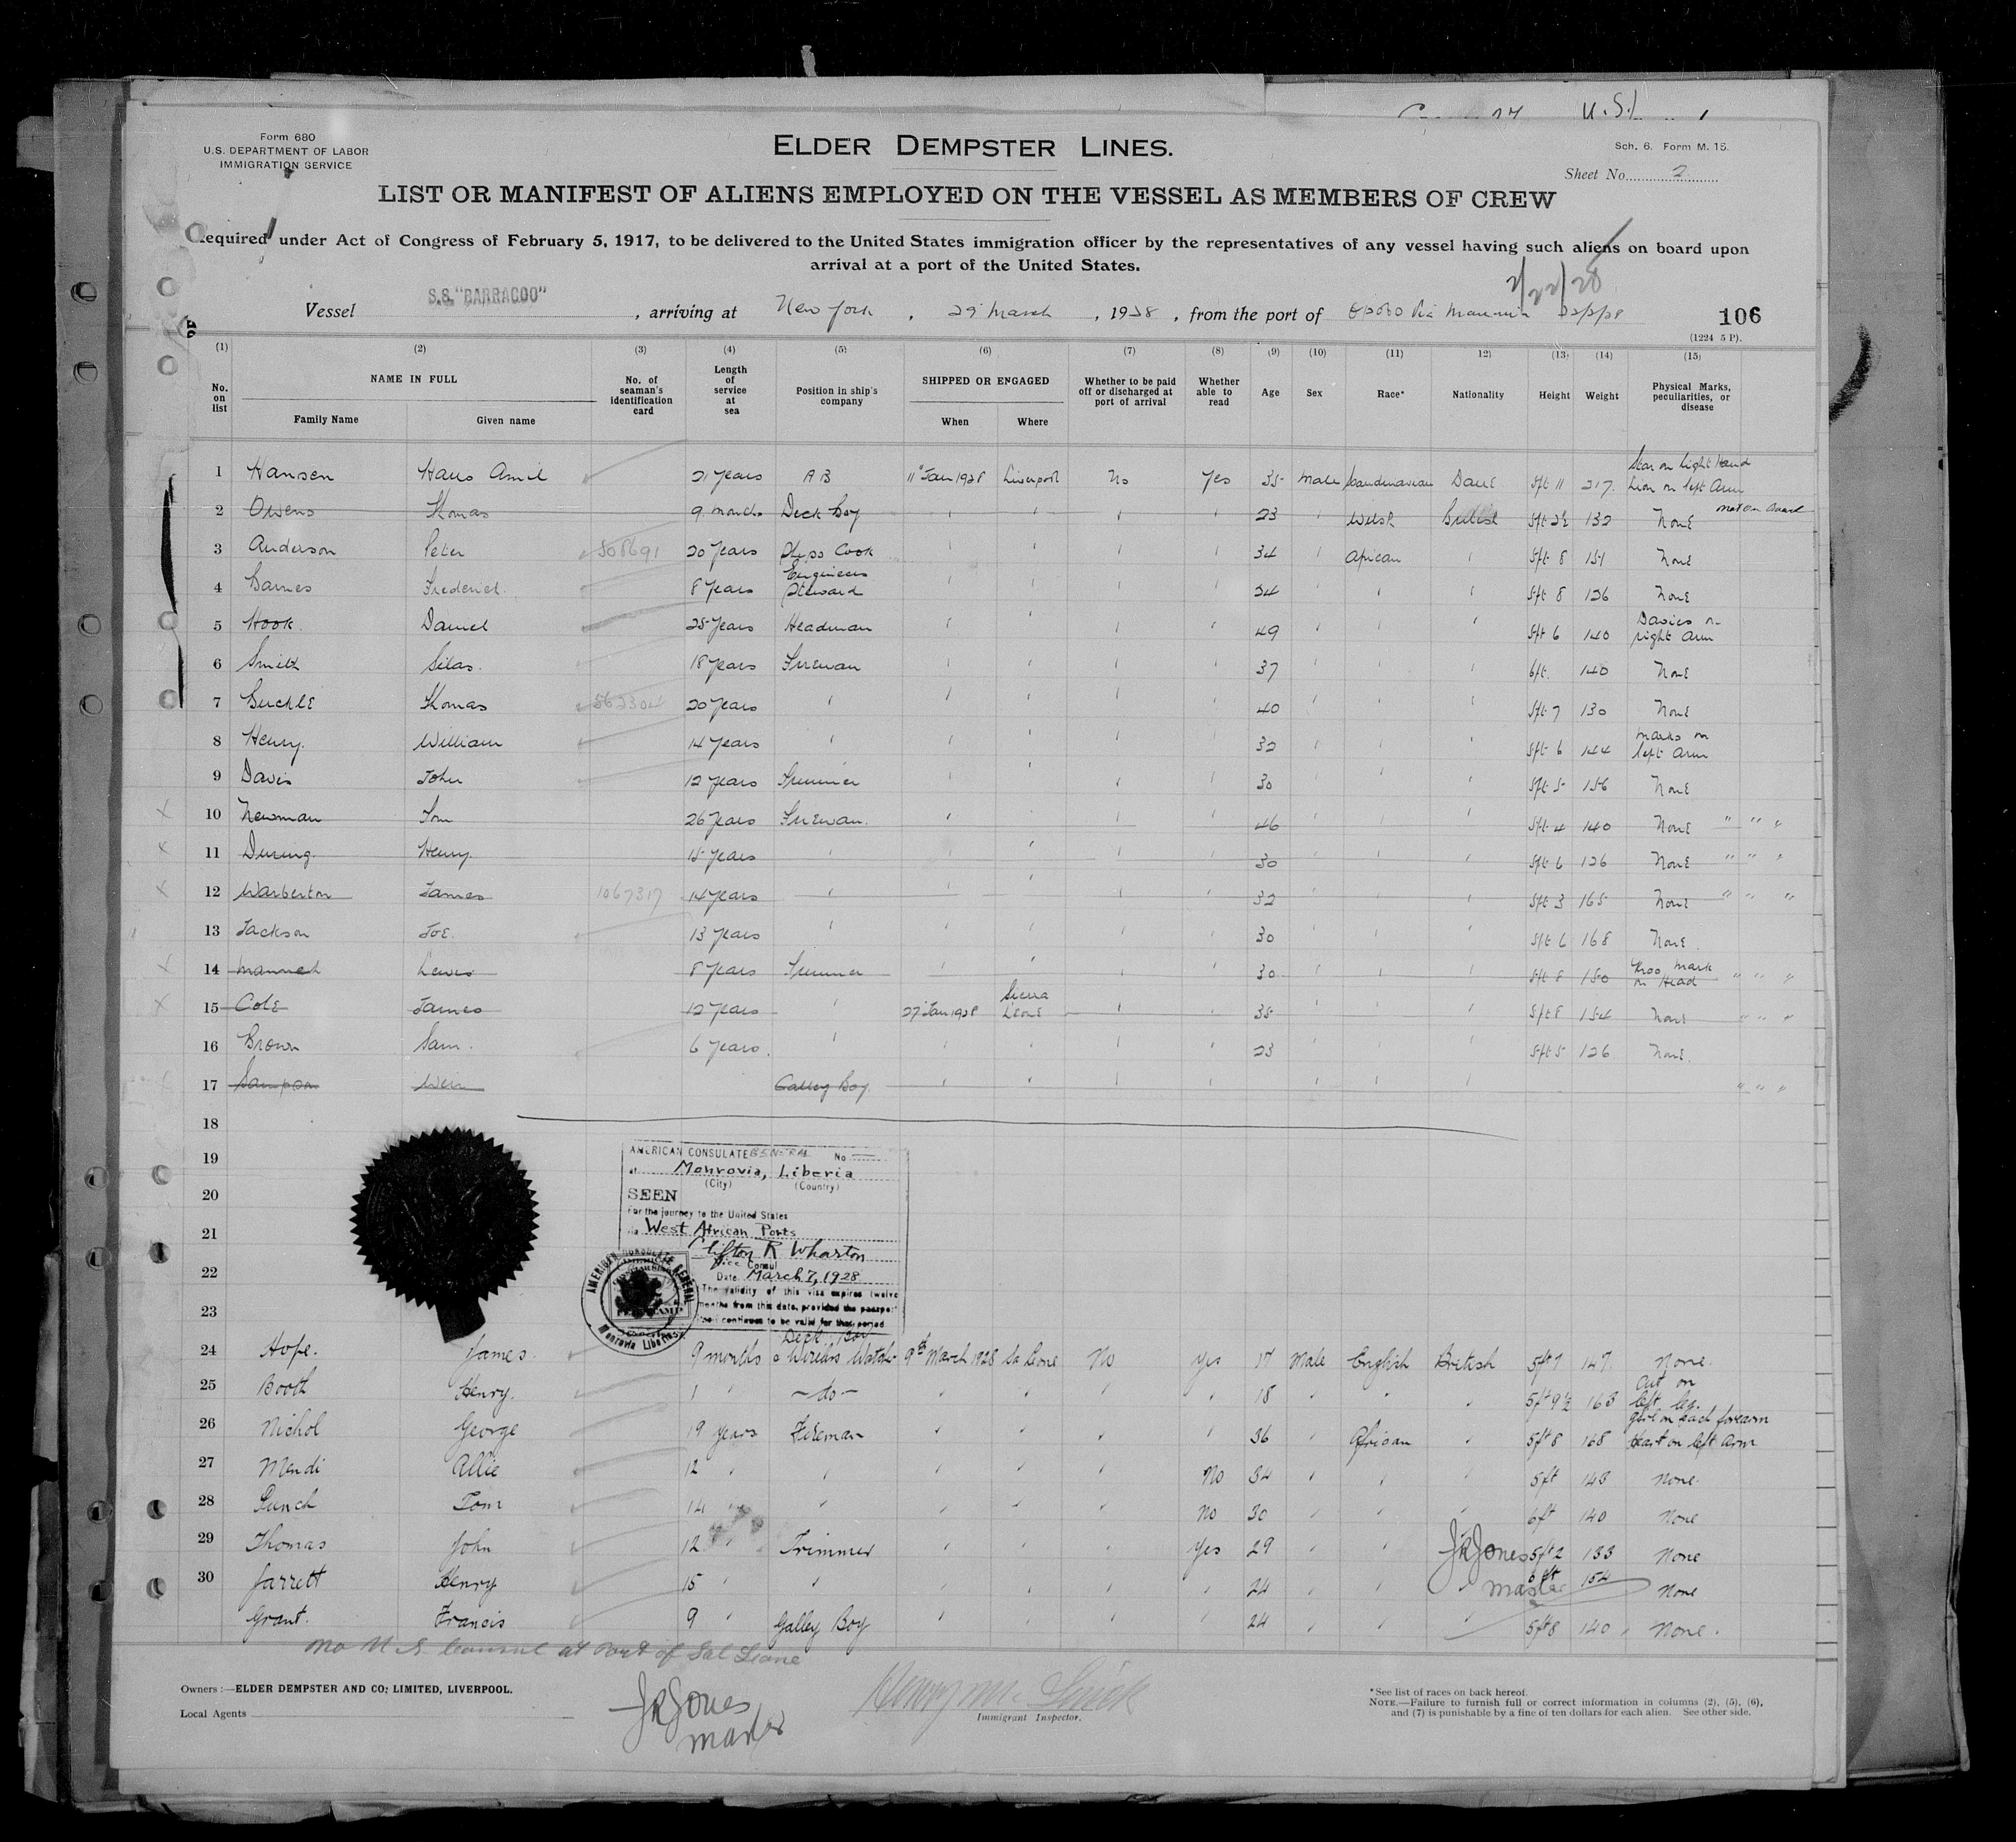 Form 680
U.S. DEPARTMENT OF LABOR
IMMIGRATION SERVICE
ELDER DEMPSTER LINES.
Sch. 6. Form M. 15.
Sheet No. 2
LIST OR MANIFEST OF ALIENS EMPLOYED ON THE VESSEL AS MEMBERS OF CREW
Required under Act of Congress of February 5, 1917, to be delivered to the United States immigration officer by the representatives of any vessel having such aliens on board upon
arrival at a port of the United States.
Vessel S.S. "BARRACOO", arriving at New York, 29 March, 1928, from the port of via
106
(1224 5 P).
(1) (2) (3) (4) (5) (6) (7) (8) (9) (10) (11) (12) (13) (14) (15)
No. on list NAME IN FULL Family Name Given name No. of seaman's identification card Length of service at sea Position in ship's company SHIPPED OR ENGAGED When Where Whether to be paid off or discharged at port of arrival Whether able to read Age Sex Race* Nationality Height Weight Physical Marks, peculiarities, or disease
1 Hansen Hans 21 years A B 11 Jan 1928 Liverpool No Yes 35 Male Scandinavian Dane 5ft 11 217 Star on right Hand Lion on left Arm
2 Owens Thomas 9 months Deck Boy ' ' ' ' 23 ' Welsh British 5ft 2½ 132 None not on board
3 Anderson Peter 508691 20 years Ships Cook ' ' ' ' 34 ' African ' 5ft 8 151 None
4 Barnes Frederick 8 years Engineers Steward ' ' ' ' 24 ' ' ' 5ft 8 126 None
5 Hook Daniel 25 years Headman ' ' ' ' 49 ' ' ' 5ft 6 140 right arm
6 Smith Silas 18 years Fireman ' ' ' ' 37 ' ' ' 6ft 140 None
7 Buckle Thomas 562304 20 years ' ' ' ' ' 40 ' ' ' 5ft 7 130 None
8 Henry William 14 years ' ' ' ' ' 32 ' ' ' 5ft 6 144 marks on left arm
9 Davis John 12 years Trimmer ' ' ' ' 30 ' ' ' 5ft 5 156 None
10 Newman Tom 26 years Fireman ' ' ' ' 46 ' ' ' 5ft 4 140 None " " "
11 During Henry 15 years ' ' ' ' ' 30 ' ' ' 5ft 6 126 None " " "
12 Warberton James 1067317 14 years ' ' ' ' ' 32 ' ' ' 5ft 3 165 None " " "
13 Jackson Joe 13 years ' ' ' ' ' 30 ' ' ' 5ft 6 168 None
14 Mannah Lewis 8 years Trimmer ' ' ' ' 30 ' ' ' 5ft 8 150 Kroo mark on Head " " "
15 Cole James 12 years ' 27 Jan 1928 Sierra Leone ' ' 35 ' ' ' 5ft 8 154 None " " "
16 Brown Sam 6 years ' ' ' ' ' 23 ' ' ' 5ft 5 126 None
17 Sampson Weir Galley Boy ' ' ' ' ' ' ' " " "
18
19
20
21
22
23
AMERICAN CONSULATE GENERAL No
at Monrovia, Liberia
(City) (Country)
SEEN
For the journey to the United States
via West African Ports
Clifton R Wharton
Vice Consul
Date March 7, 1928
The validity of this visa expires twelve
months from this date, provided the passport
continues to be valid for that period
AMERICAN CONSULATE GENERAL
Monrovia Liberia
24 Hope James 9 months Deck Boy 9th March 1928 Sa Leone No Yes 17 Male English British 5ft 7 147 None
25 Booth Henry 1 ' -do- ' ' ' ' 18 ' ' ' 5ft 9½ 163 Cut on left leg
26 Nichol George 19 years Fireman ' ' ' ' 36 ' African ' 5ft 8 168 Girl on each forearm Heart on left arm
27 Mendi Allie 12 ' ' ' ' ' No 34 ' ' ' 5ft 143 None
28 Gunch Tom 14 ' ' ' ' ' No 30 ' ' ' 6ft 140 None
29 Thomas John 12 ' Trimmer ' ' ' Yes 29 ' ' 5ft 2 133 None
30 Jarrett Henry 15 ' ' ' ' ' ' 24 ' ' ' 6ft 154 None
JR Jones
master
Grant Francis 9 ' Galley Boy ' ' ' ' 24 ' ' ' 5ft 8 140 None
No U.S. Consul at Port of Leone
Owners:—ELDER DEMPSTER AND CO; LIMITED, LIVERPOOL.
Local Agents
JR Jones
master
Immigrant Inspector.
*See list of races on back hereof.
NOTE.—Failure to furnish full or correct information in columns (2), (5), (6),
and (7) is punishable by a fine of ten dollars for each alien. See other side.